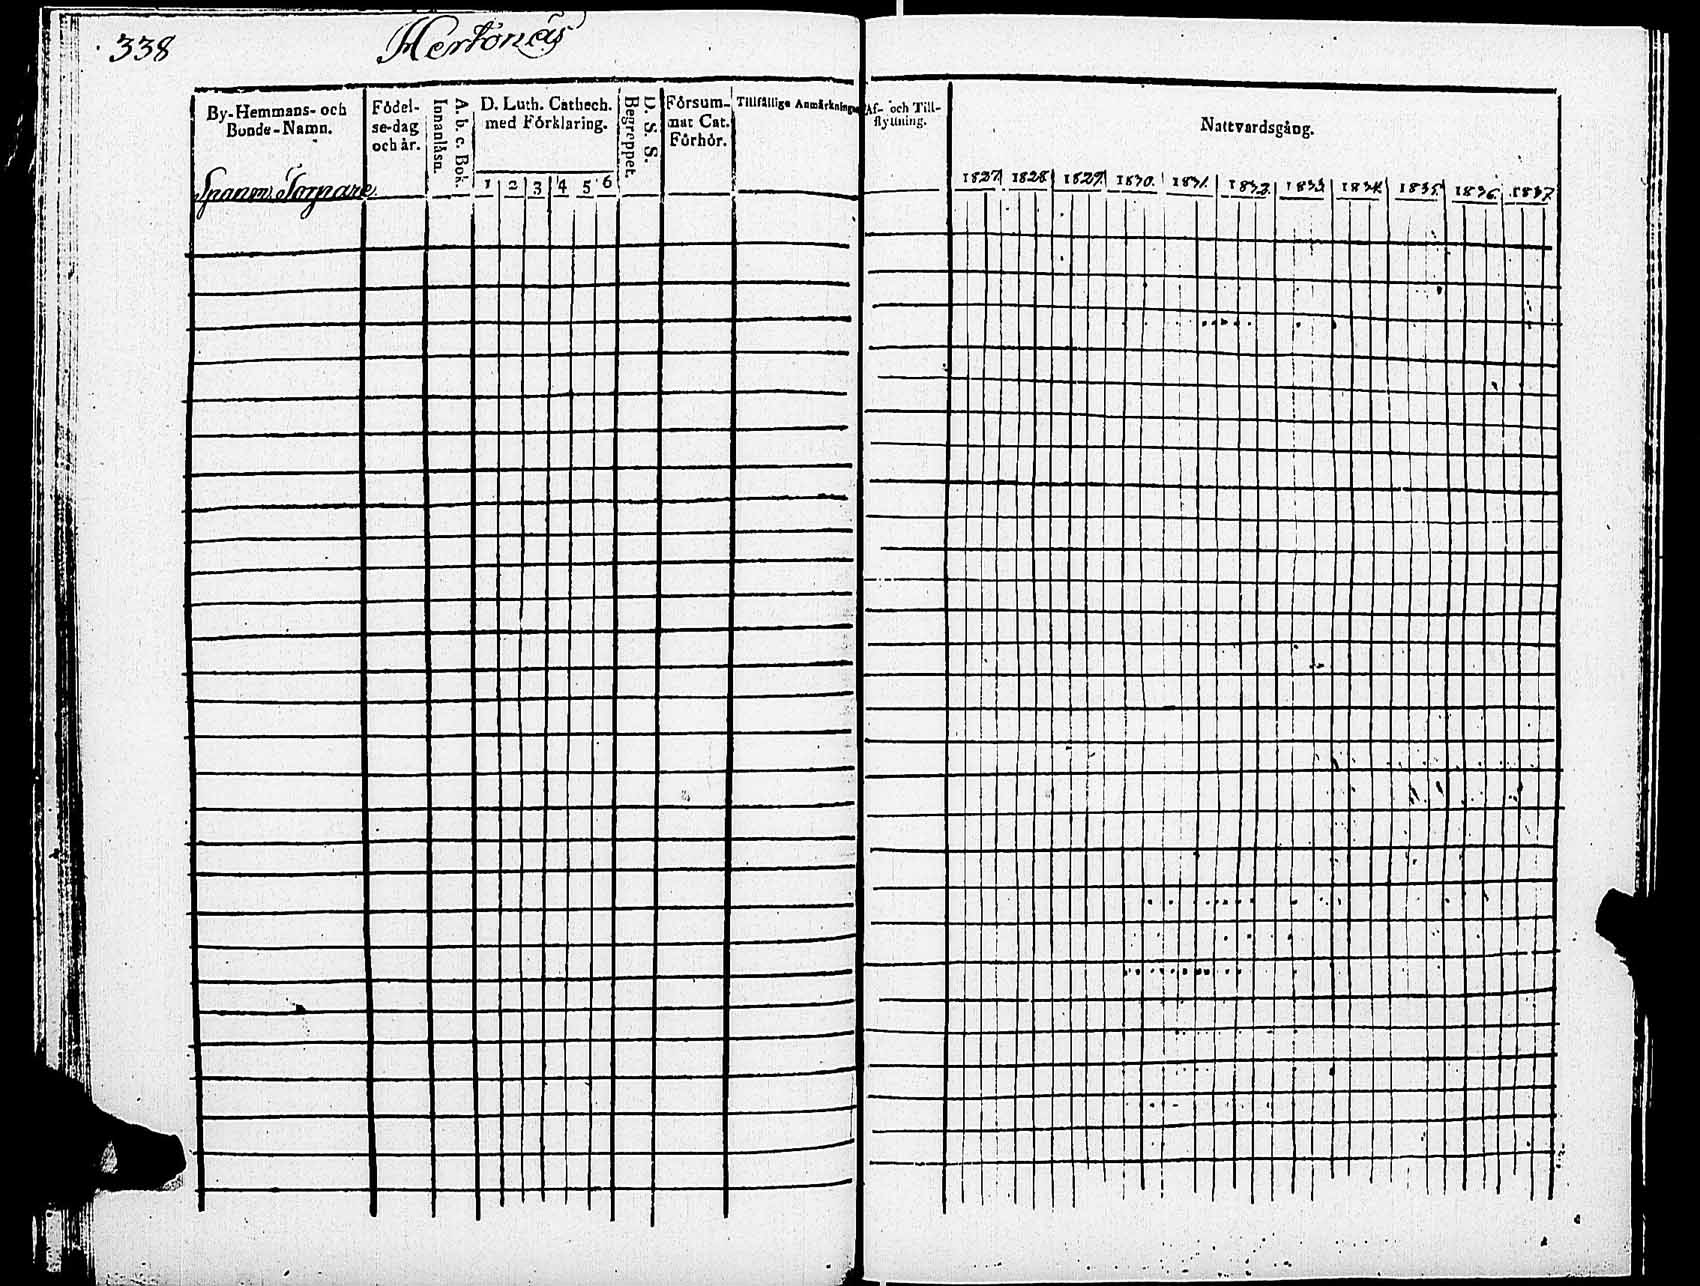 338
Hertonäs
By-Hemmans- och
Bonde-Namn.
Födel-
se-dag
och år.
A. b. c. Bok.
Innanläsn.
D. Luth. Cathech.
med Förklaring.
1 2 3 4 5 6
D. S. S.
Begreppet.
Försum-
mat Cat.
Förhör.
Tillfällige Anmärkningar
Torpare.
Af- och Till-
flyttning.
Nattvardsgång.
1827. 1828. 1829. 1830. 1831. 1832. 1833. 1834. 1835. 1836. 1837.